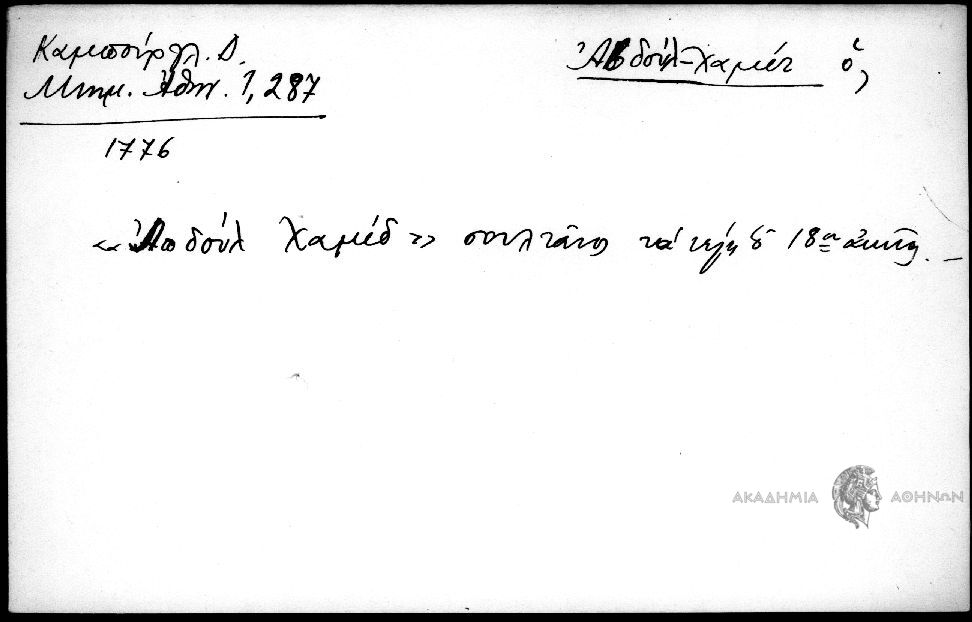 Καμπούρογλ. Δ.
Μνημ. Ἀθην. 1, 287
Ἀβδούλ-Χαμέτ ὁ,
1776
«Ἀπδούλ Χαμέδ» σουλτᾶνος τά τέλη 18ης
ΑΚΑΔΗΜΙΑ ΑΘΗΝΩΝ